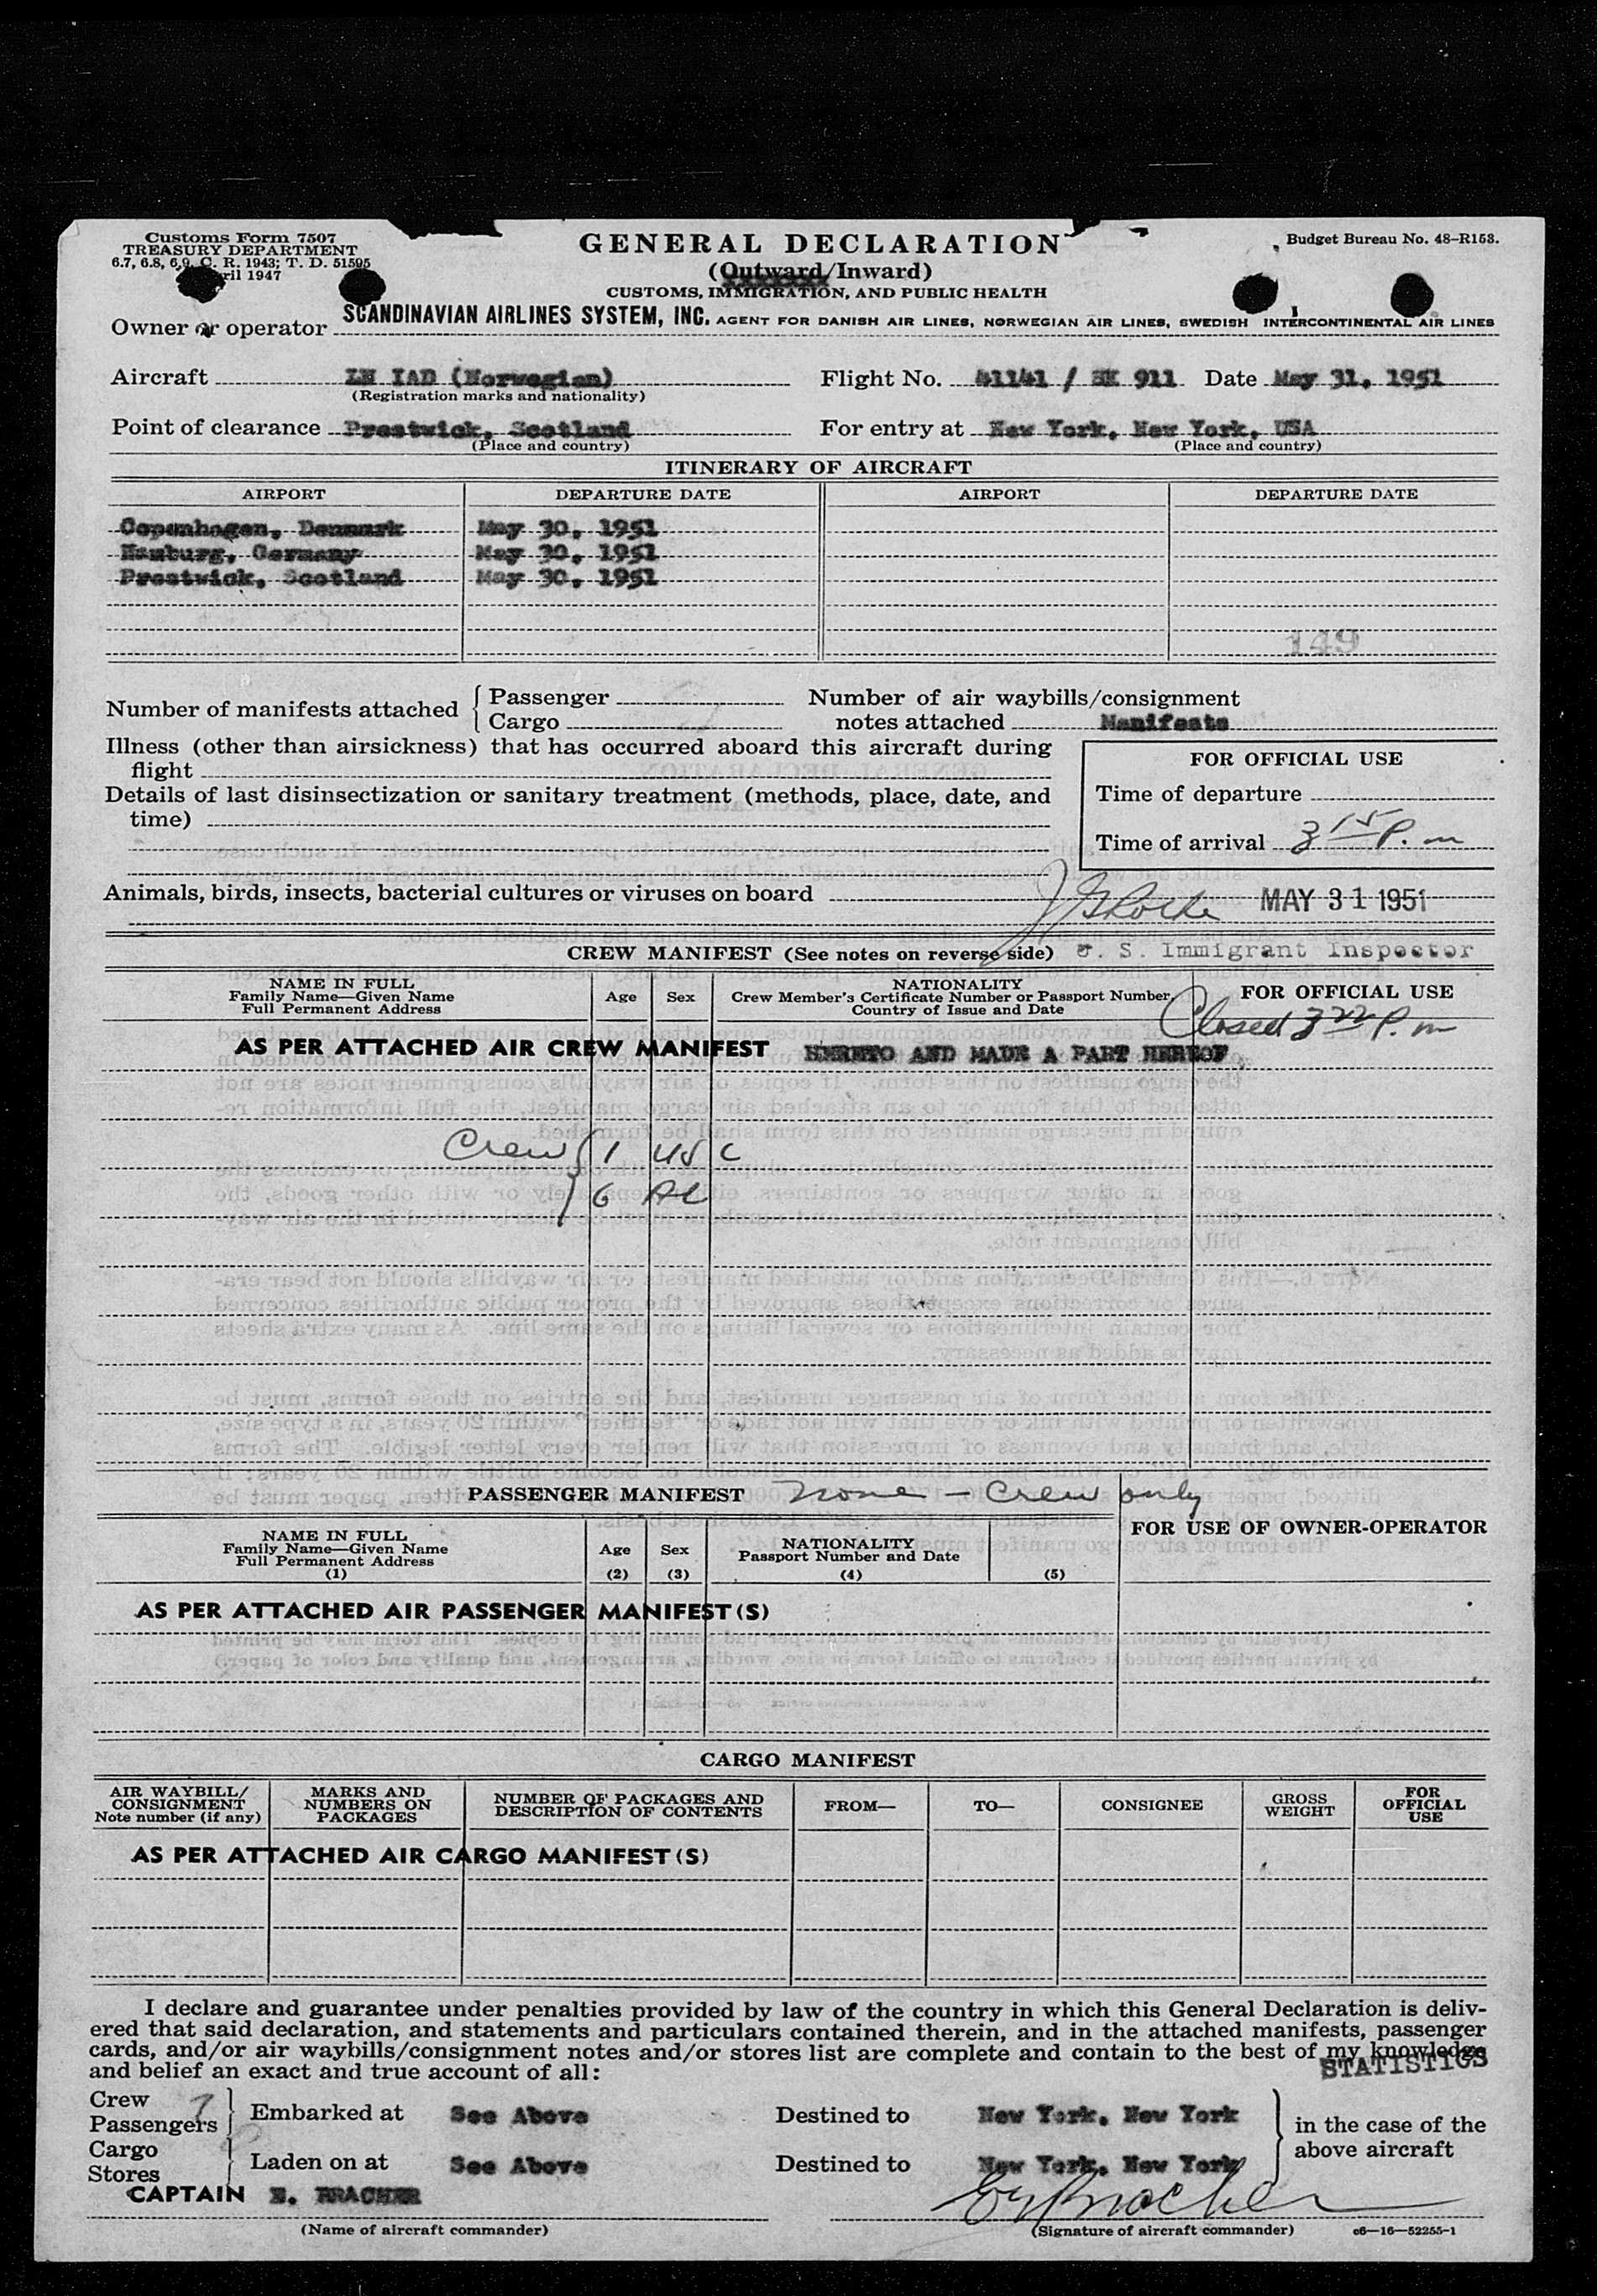 Customs Form 7507
TREASURY DEPARTMENT
6.7, 6.8, 6.9, C. R. 1943; T. D. 51595
ril 1947
GENERAL DECLARATION
(Outward/Inward)
CUSTOMS, IMMIGRATION, AND PUBLIC HEALTH
Budget Bureau No. 48-R153.
Owner or operator SCANDINAVIAN AIRLINES SYSTEM, INC. AGENT FOR DANISH AIR LINES, NORWEGIAN AIR LINES, SWEDISH INTERCONTINENTAL AIR LINES
Aircraft LN IAD (Norwegian) Flight No. 41141 / SK 911 Date May 31, 1951
(Registration marks and nationality)
Point of clearance Prestwick, Scotland For entry at New York, New York, USA
(Place and country) (Place and country)
ITINERARY OF AIRCRAFT
AIRPORT DEPARTURE DATE AIRPORT DEPARTURE DATE
Copenhagen, Denmark May 30, 1951
Hamburg, Germany May 30, 1951
Prestwick, Scotland May 30, 1951
149
Number of manifests attached { Passenger Number of air waybills/consignment
Cargo notes attached Manifests
Illness (other than airsickness) that has occurred aboard this aircraft during
flight
Details of last disinsectization or sanitary treatment (methods, place, date, and
time)
FOR OFFICIAL USE
Time of departure
Time of arrival 3 15 P. m
Animals, birds, insects, bacterial cultures or viruses on board
MAY 31 1951
CREW MANIFEST (See notes on reverse side) U. S. Immigrant Inspector
NAME IN FULL
Family Name—Given Name
Full Permanent Address
Age Sex
NATIONALITY
Crew Member's Certificate Number or Passport Number,
Country of Issue and Date
FOR OFFICIAL USE
Closed 3 22 P. m
AS PER ATTACHED AIR CREW MANIFEST HERETO AND MADE A PART HEREOF
Crew { 1 US C
6 AL
PASSENGER MANIFEST None - Crew only
NAME IN FULL
Family Name—Given Name
Full Permanent Address
(1)
Age
(2)
Sex
(3)
NATIONALITY
Passport Number and Date
(4) (5)
FOR USE OF OWNER-OPERATOR
AS PER ATTACHED AIR PASSENGER MANIFEST(S)
CARGO MANIFEST
AIR WAYBILL/
CONSIGNMENT
Note number (if any)
MARKS AND
NUMBERS ON
PACKAGES
NUMBER OF PACKAGES AND
DESCRIPTION OF CONTENTS
FROM— TO— CONSIGNEE
GROSS
WEIGHT
FOR
OFFICIAL
USE
AS PER ATTACHED AIR CARGO MANIFEST(S)
I declare and guarantee under penalties provided by law of the country in which this General Declaration is deliv-
ered that said declaration, and statements and particulars contained therein, and in the attached manifests, passenger
cards, and/or air waybills/consignment notes and/or stores list are complete and contain to the best of my knowledge
and belief an exact and true account of all:
STATISTICS
Crew 7
Passengers } Embarked at See Above Destined to New York, New York
in the case of the
above aircraft
Cargo
Stores } Laden on at See Above Destined to New York, New York
CAPTAIN E. BRACHER
(Name of aircraft commander) (Signature of aircraft commander) c6—16—52255-1